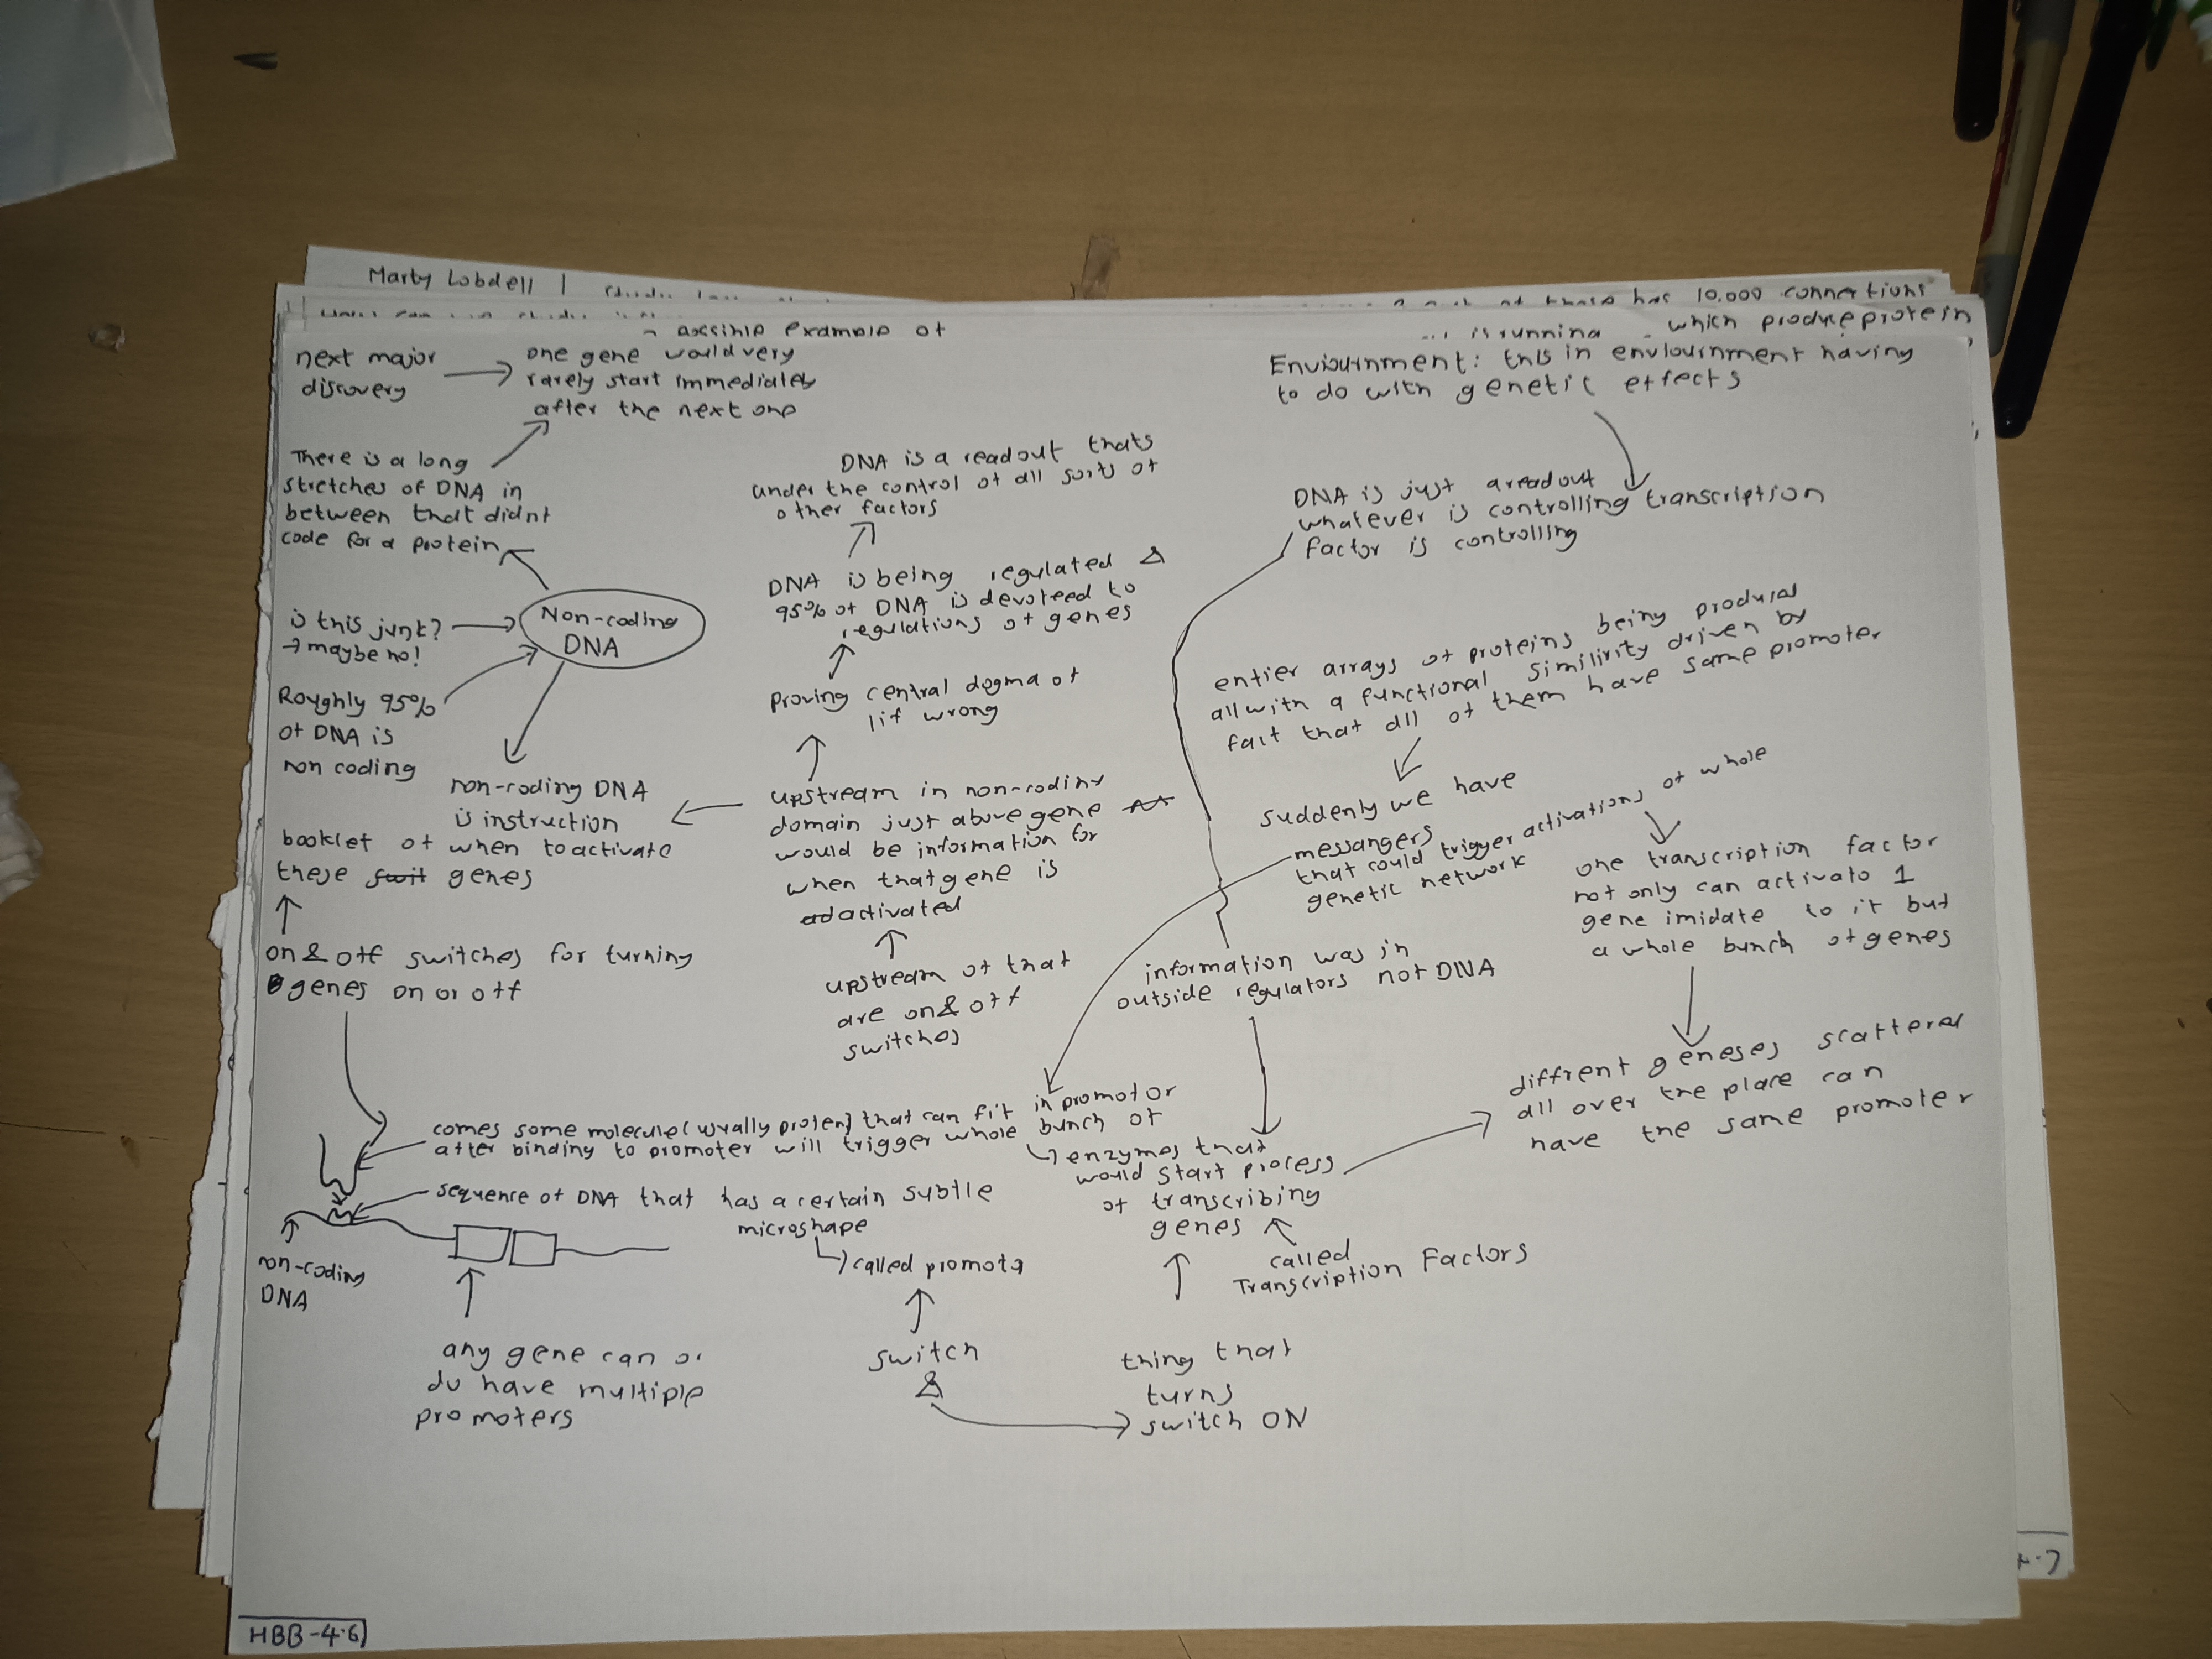 Marty Lobdell |
has 10,000 connections
assible example of
is running
which produce protein
next major
discovery
one gene would very
rarely start immediately
after the next one
There is a long
stretches of DNA in
between that didnt
code for a protein
is this junk?
→ maybe no!
Non-coding
DNA
Roughly 95%
of DNA is
non coding
non-coding DNA
is instruction
booklet of when to activate
these swit genes
on & off switches for turning
genes on or off
DNA is a readout thats
under the control of all sorts of
other factors
DNA is being regulated &
95% of DNA is devoteed to
regulations of genes
proving central dogma of
lif wrong
upstream in non-coding
domain just above gene
would be information for
when that gene is
ad activated
upstream of that
are on & off
switches
Enviournment: this in enviournment having
to do with genetic effects
DNA is just a readout
whatever is controlling transcription
factor is controlling
entier arrays of proteins being produced
all with a functional similirity driven by
fact that all of them have same promoter
suddenly we have
messangers
that could trigger activations of whole
genetic network
one transcription factor
not only can activate 1
gene imidate to it but
a whole bunch of genes
information was in
outside regulators not DNA
diffrent geneses scattered
all over the place can
have the same promoter
comes some molecule (usually protein) that can fit in promotor
after binding to promoter will trigger whole bunch of
enzymes that
would start process
of transcribing
genes
called
Transcription Factors
sequence of DNA that has a certain subtle
microshape
called promota
non-coding
DNA
any gene can or
do have multiple
promoters
switch
&
thing that
turns
switch ON
HBB-4.6)